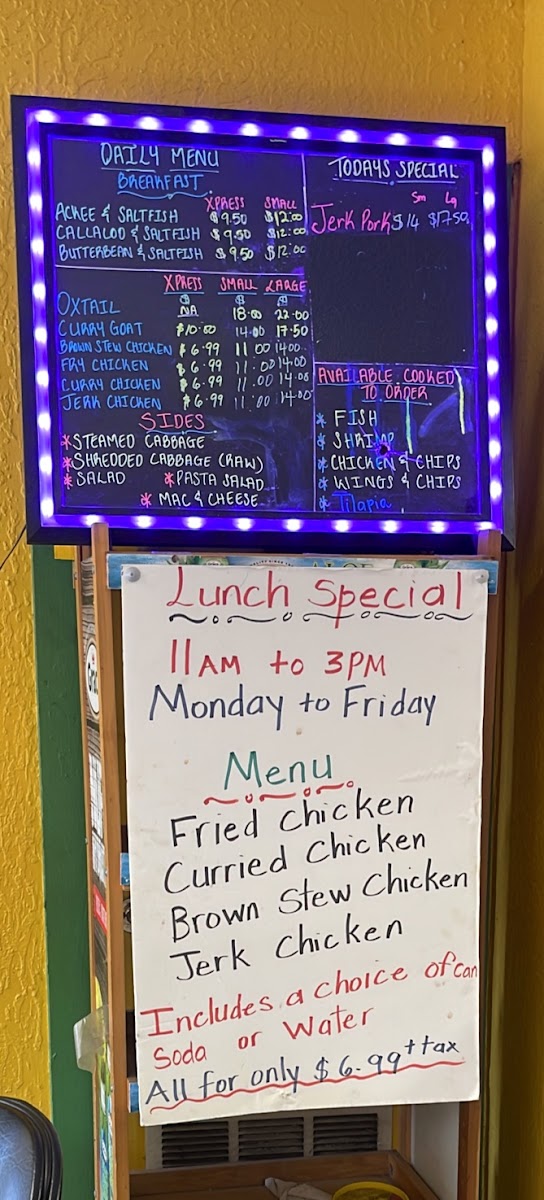 DAILY MENU
BREAKFAST
XPRESS SMALL
ACKEE & SALTFISH $9.50 $12.00
CALLALOO & SALTFISH $9.50 $12.00
BUTTERBEAN & SALTFISH $9.50 $12.00
XPRESS SMALL LARGE
$ $ $
OXTAIL NA 18.00 22.00
CURRY GOAT $10.50 14.00 17.50
BROWN STEW CHICKEN $6.99 11.00 14.00
FRY CHICKEN $6.99 11.00 14.00
CURRY CHICKEN $6.99 11.00 14.00
JERK CHICKEN $6.99 11.00 14.00
SIDES
*STEAMED CABBAGE
*SHREDDED CABBAGE (RAW)
*SALAD *PASTA SALAD
*MAC & CHEESE
TODAYS SPECIAL
Sm Lg
Jerk Pork $14 $17.50
AVAILABLE COOKED
TO ORDER
* FISH
* SHRIMP
* CHICKEN & CHIPS
* WINGS & CHIPS
* Tilapia
Lunch Special
11AM to 3PM
Monday to Friday
Menu
Fried Chicken
Curried Chicken
Brown Stew Chicken
Jerk Chicken
Includes a choice of can
Soda or Water
All for only $6.99 + tax